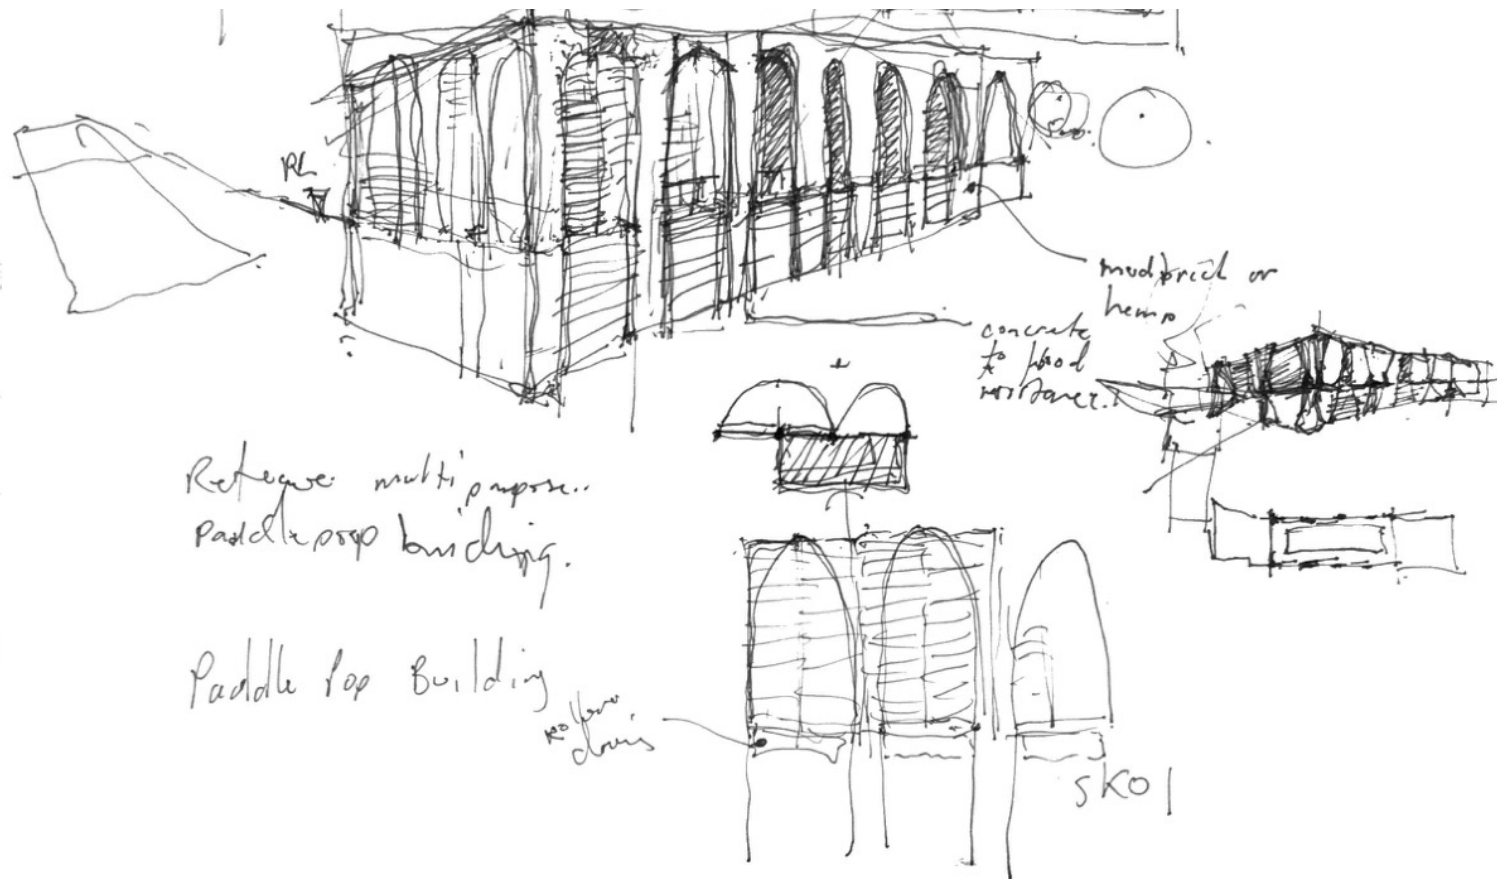 RL
mudbrick or
hemp
concrete
to flood
resistance.
multi purpose..
Paddlepop building.
Paddle Pop Building
Roller
doors
SK01